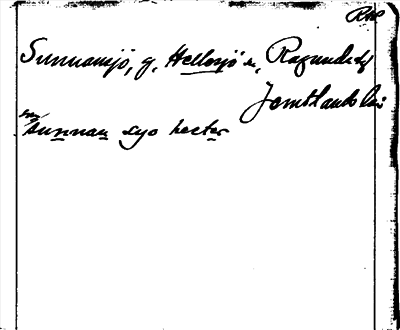 Sunnansjö, g, Hellesjö sn, Ragunda tg
Jämtlands län
sunnan syo heeter